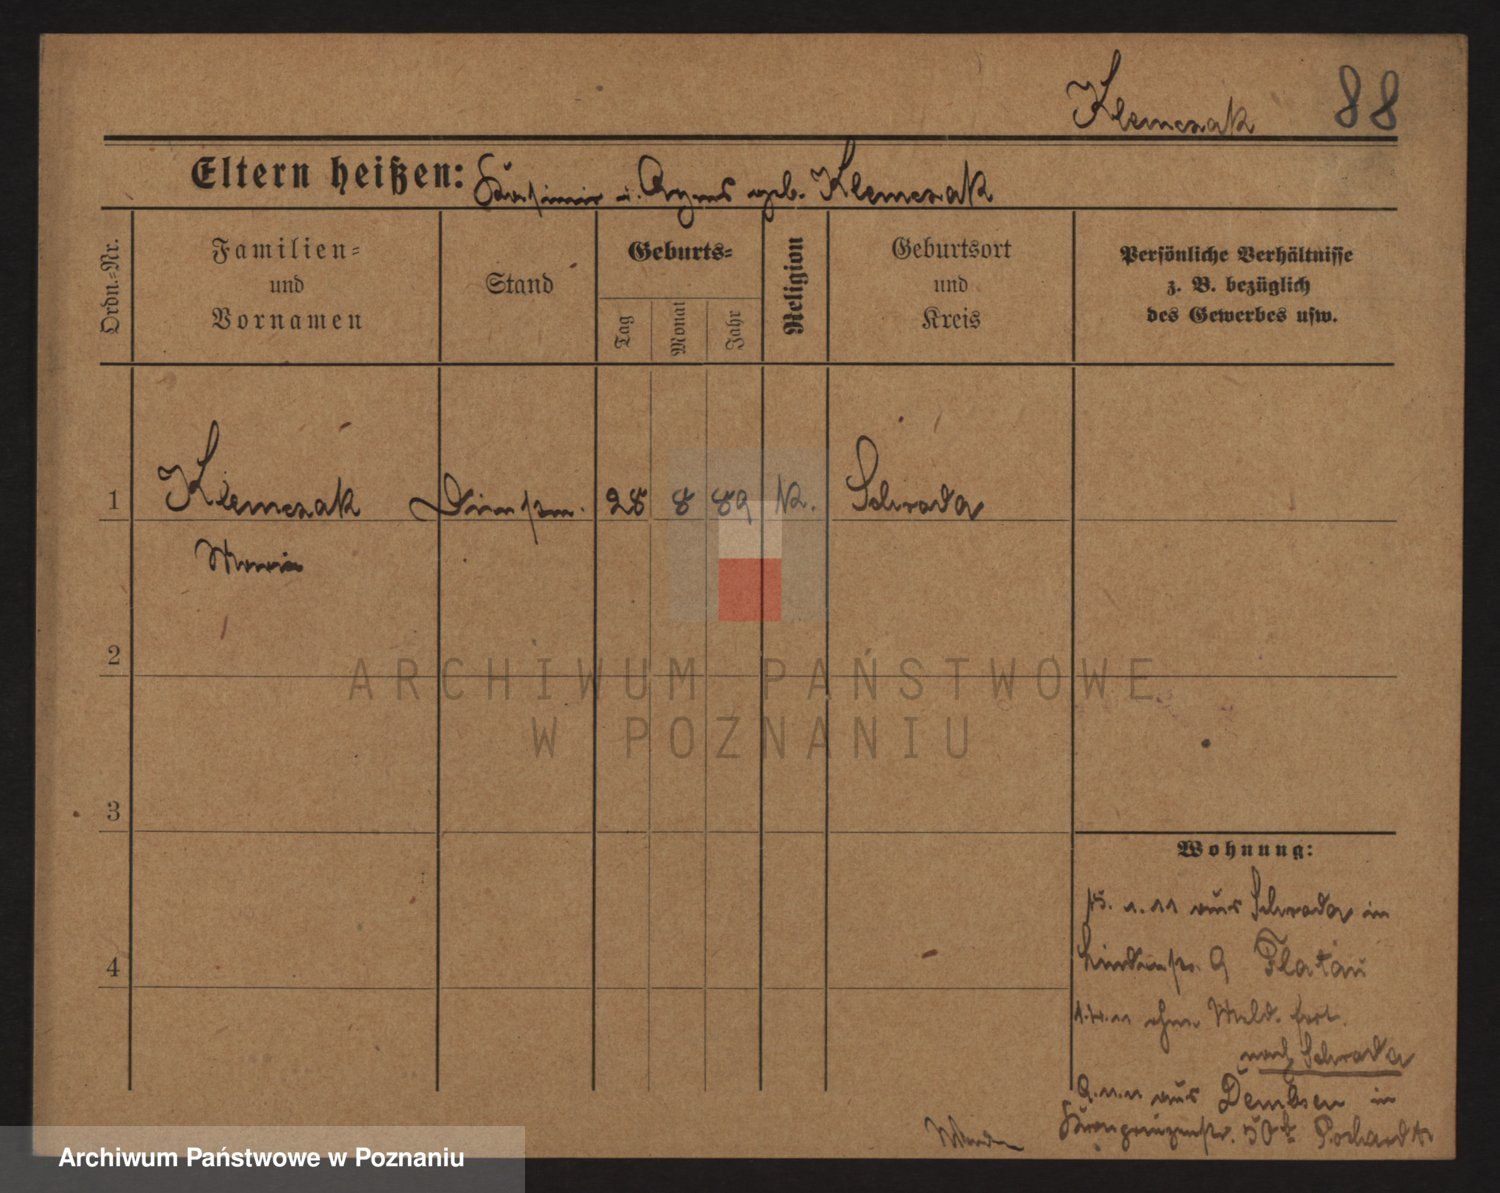 Klemczak 88
Eltern heißen: Kasimir u. Agnes geb. Klemczak
Ordn.=Nr.
Familien=
und
Vornamen
Stand
Geburts=
Tag
Monat
Jahr
Religion
Geburtsort
und
Kreis
Persönliche Verhältnisse
z. B. bezüglich
des Gewerbes usw.
1 Klemczak Dienstm. 28 8 89 K. Schroda
Maria
2
3
4
Wohnung:
aus Schroda in
Lindenstr. 9 Flatau
ohne Meld. fort.
nach Schroda
9.11.11 aus Dembsen in
Kronprinzenstr. 50
ARCHIWUM PAŃSTWOWE
W POZNANIU
Archiwum Państwowe w Poznaniu